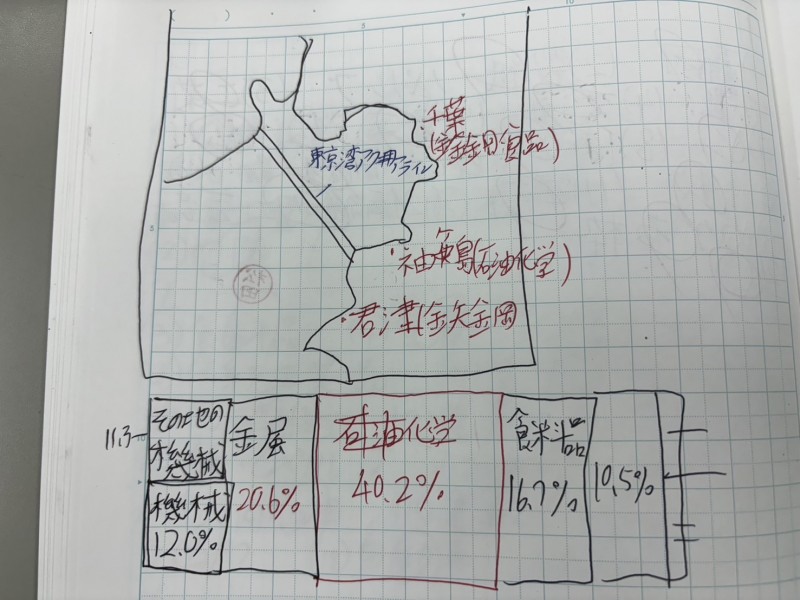 千葉
(鉄鋼・食品)
東京湾アクアライン
袖ケ浦(石油化学)
君津(鉄鋼
その他の
機械
11.3
金属
石油化学
食料品
40.2%
20.6%
16.7%
10.5%
機械
12.0%